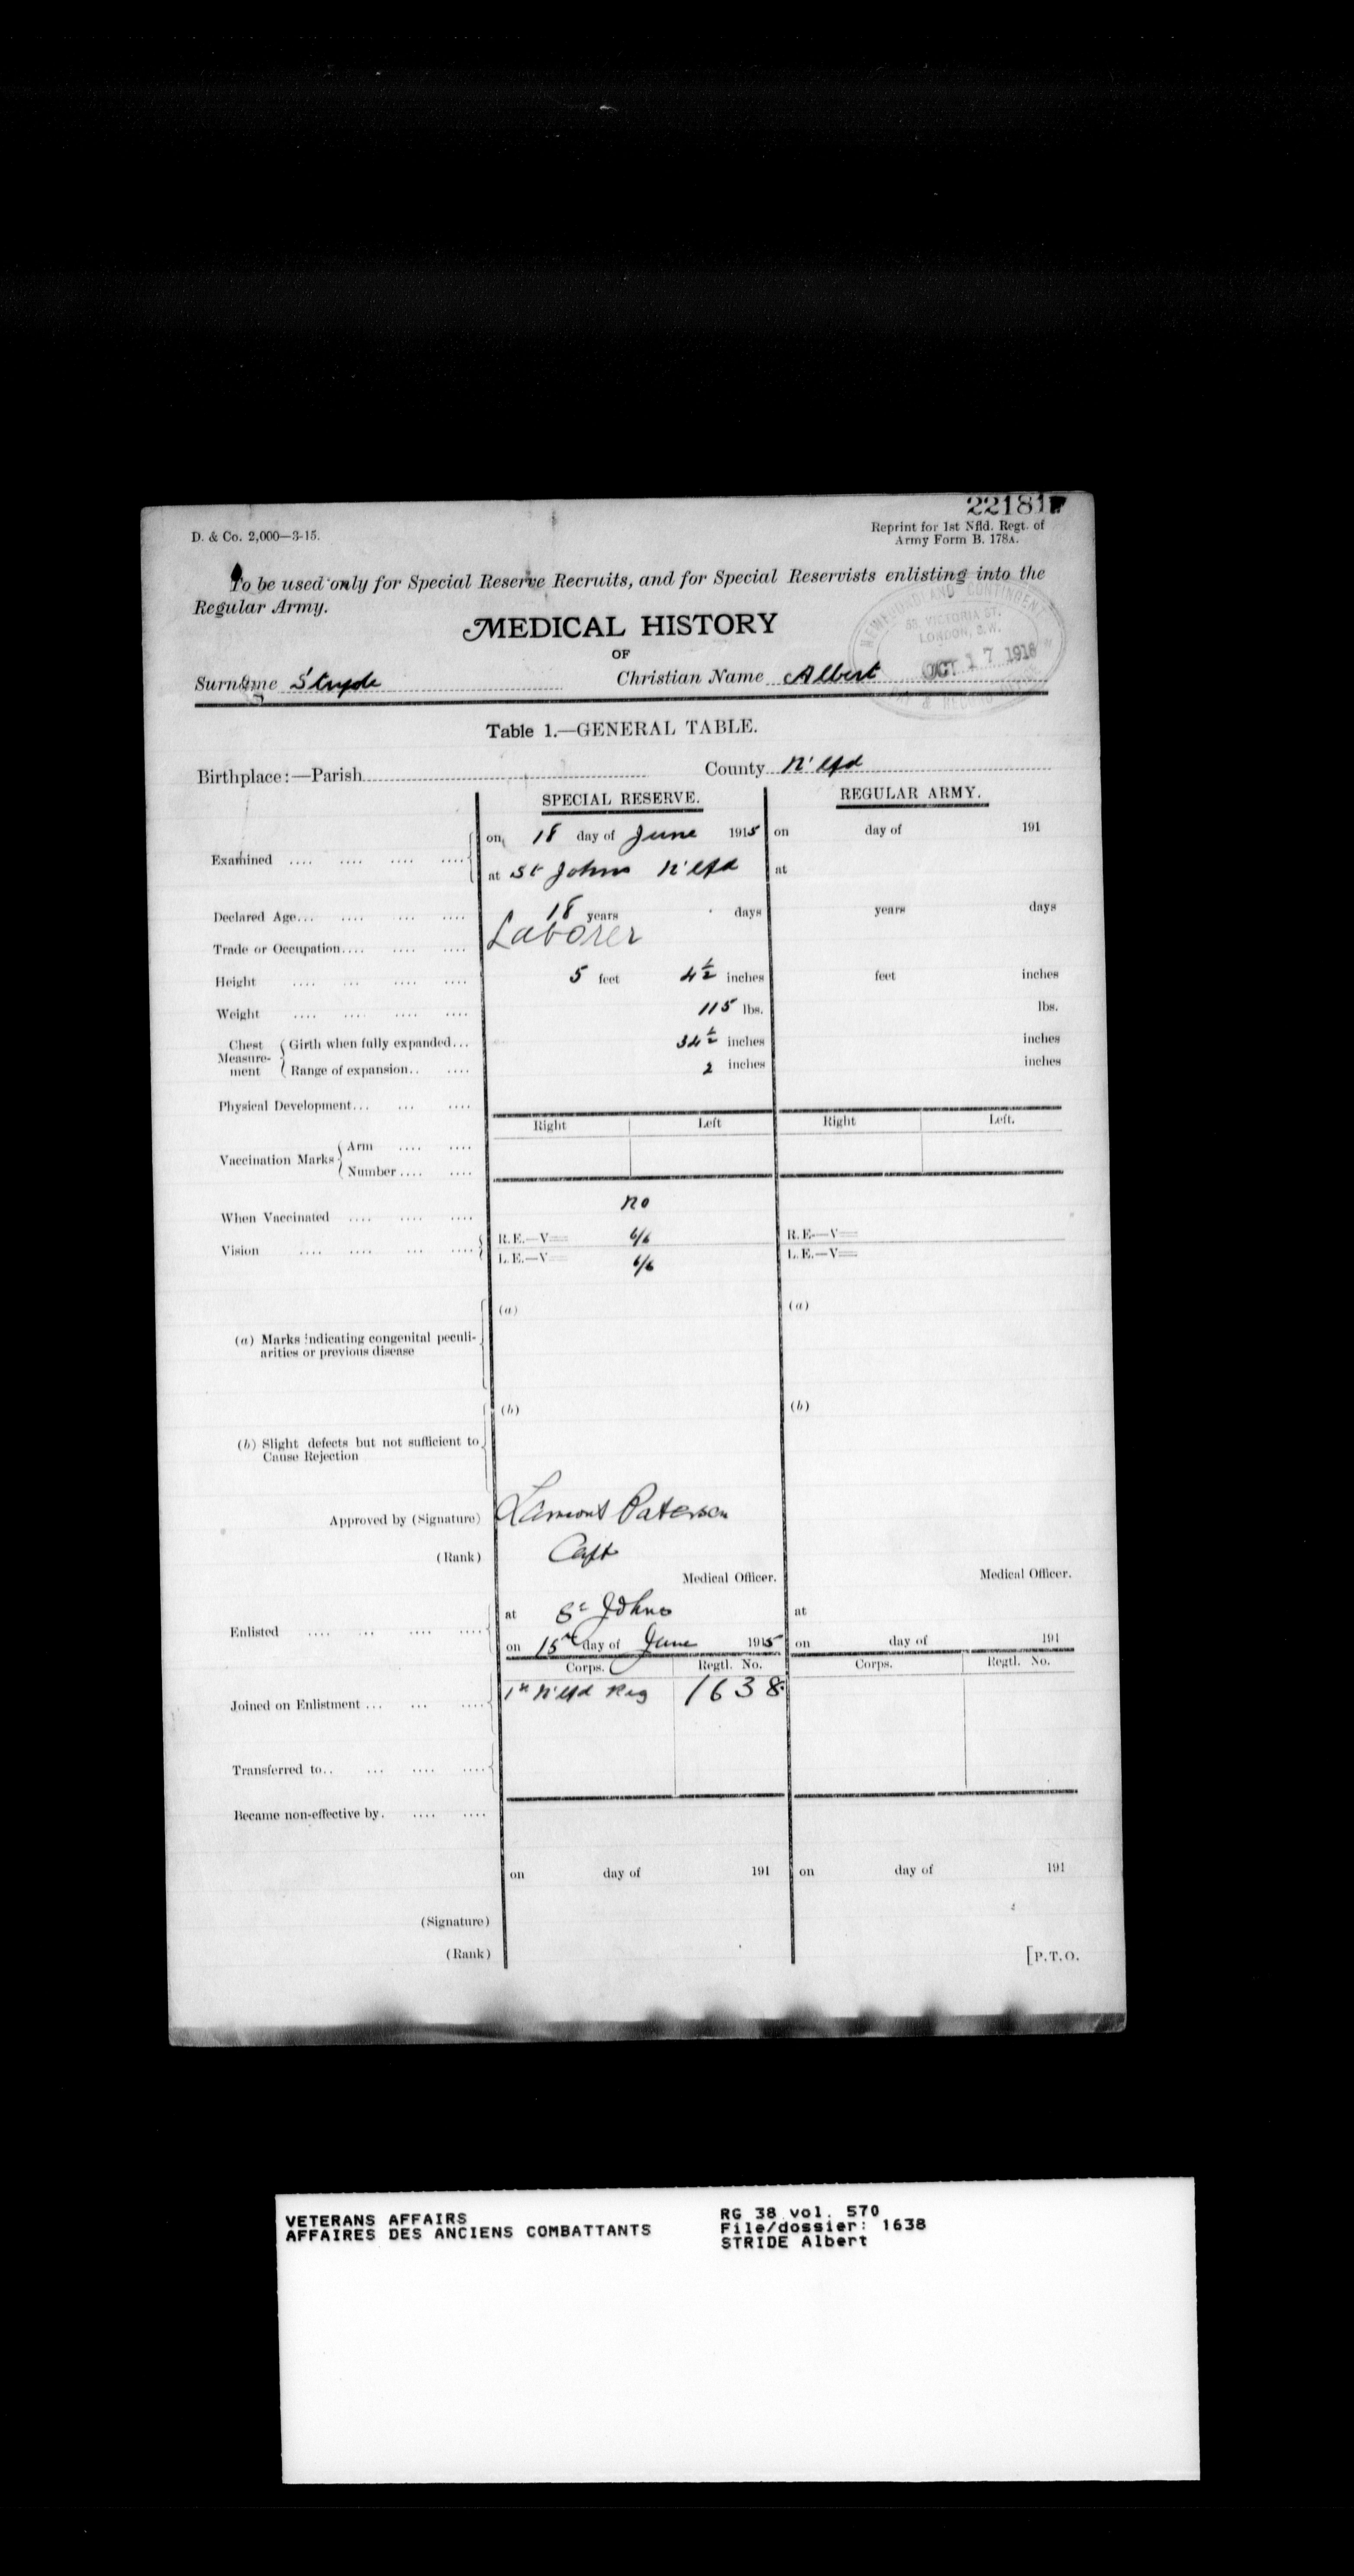 22181
D. & Co. 2,000—3-15.
Reprint for 1st Nfld. Regt. of
Army Form B. 178A.
To be used only for Special Reserve Recruits, and for Special Reservists enlisting into the
Regular Army.
MEDICAL HISTORY
OF
Surname Stryde Christian Name Albert
NEWFOUNDLAND CONTINGENT
58, VICTORIA ST.
LONDON, S.W.
OCT 17 1916
Table 1.—GENERAL TABLE.
Birthplace:—Parish County N'lfd
SPECIAL RESERVE. REGULAR ARMY.
Examined on 18 day of June 1915 on day of 191
at St Johns N'lfd at
Declared Age 18 years days years days
Trade or Occupation Laborer
Height 5 feet 4½ inches feet inches
Weight 115 lbs. lbs.
Chest Measurement Girth when fully expanded 34½ inches inches
Range of expansion 2 inches inches
Physical Development
Right Left Right Left.
Vaccination Marks Arm
Number
When Vaccinated no
Vision R.E.—V= 6/6 R.E.—V=
L.E.—V= 6/6 L.E.—V=
(a) (a)
(a) Marks indicating congenital peculi-
arities or previous disease
(b) (b)
(b) Slight defects but not sufficient to
Cause Rejection
Approved by (Signature) Lamont Paterson
(Rank) Capt
Medical Officer. Medical Officer.
Enlisted at St Johns at
on 15th day of June 1915 on day of 191
Corps. Regtl. No. Corps. Regtl. No.
Joined on Enlistment 1st N'lfd Reg 1638
Transferred to
Became non-effective by
on day of 191 on day of 191
(Signature)
(Rank)
[P.T.O.
VETERANS AFFAIRS
AFFAIRES DES ANCIENS COMBATTANTS
RG 38 vol. 570
File/dossier: 1638
STRIDE Albert